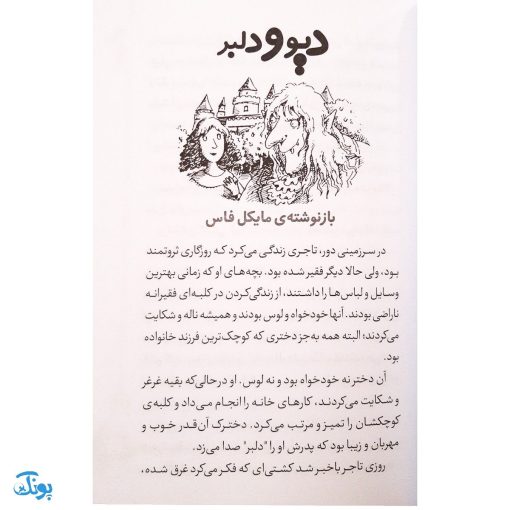 دیو و دلبر
بازنوشته‌ی مایکل فاس
در سرزمینی دور، تاجری زندگی می‌کرد که روزگاری ثروتمند
بود، ولی حالا دیگر فقیر شده بود. بچه‌های او که زمانی بهترین
وسایل و لباس‌ها را داشتند، از زندگی‌کردن در کلبه‌ای فقیرانه
ناراضی بودند. آنها خودخواه و لوس بودند و همیشه ناله و شکایت
می‌کردند؛ البته همه به‌جز دختری که کوچک‌ترین فرزند خانواده
بود.
آن دختر نه خودخواه بود و نه لوس. او درحالی‌که بقیه غرغر
و شکایت می‌کردند، کارهای خانه را انجام می‌داد و کلبه‌ی
کوچکشان را تمیز و مرتب می‌کرد. دخترک آن‌قدر خوب و
مهربان و زیبا بود که پدرش او را "دلبر" صدا می‌زد.
روزی تاجر باخبر شد کشتی‌ای که فکر می‌کرد غرق شده،
پونک